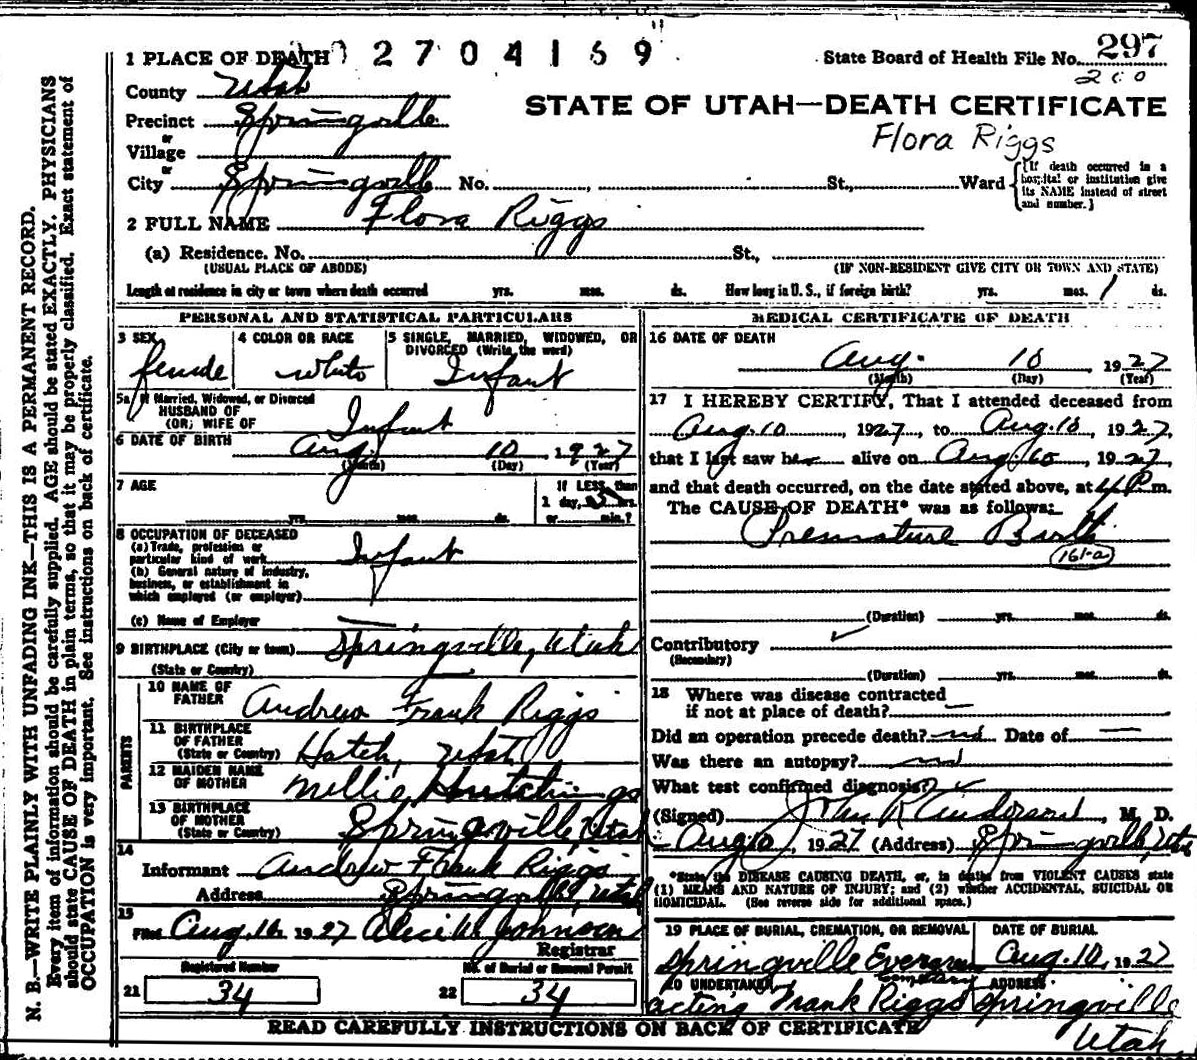 1 PLACE OF DEATH 2 7 0 4 1 5 9 State Board of Health File No. 297
200
County Utah
STATE OF UTAH—DEATH CERTIFICATE
Precinct Springville
Flora Riggs
or
Village
or
City Springville No. St., Ward
{If death occurred in a
hospital or institution give
its NAME instead of street
and number.}
2 FULL NAME Flora Riggs
(a) Residence. No. St.,
(USUAL PLACE OF ABODE) (IF NON-RESIDENT GIVE CITY OR TOWN AND STATE)
Length of residence in city or town where death occurred yrs. mos. ds. How long in U. S., if foreign birth? yrs. mos. 1 ds.
PERSONAL AND STATISTICAL PARTICULARS
3 SEX female
4 COLOR OR RACE white
5 SINGLE, MARRIED, WIDOWED, OR
DIVORCED (Write the word)
Infant
5a If Married, Widowed, or Divorced
HUSBAND OF
(OR) WIFE OF Infant
6 DATE OF BIRTH Aug. 10 1927
(Month) (Day) (Year)
7 AGE
yrs. mos. ds.
If LESS than
1 day, hrs.
or min.?
8 OCCUPATION OF DECEASED
(a) Trade, profession or
particular kind of work Infant
(b) General nature of industry,
business, or establishment in
which employed (or employer)
(c) Name of Employer
9 BIRTHPLACE (City or town) Springville, Utah
(State or Country)
PARENTS
10 NAME OF
FATHER Andrew Frank Riggs
11 BIRTHPLACE
OF FATHER
(State or Country) Hatch, Utah
12 MAIDEN NAME
OF MOTHER Nellie Hutchings
13 BIRTHPLACE
OF MOTHER
(State or Country) Springville, Utah
14
Informant Andrew Frank Riggs
Address Springville, Utah
15
Filed Aug. 16 1927 Johnson
Registrar
Registered Number No. of Burial or Removal Permit
21 34 22 34
MEDICAL CERTIFICATE OF DEATH
16 DATE OF DEATH
Aug. 10 1927
(Month) (Day) (Year)
17 I HEREBY CERTIFY, That I attended deceased from
Aug. 10, 1927, to Aug. 10, 1927,
that I last saw her alive on Aug 10, 1927,
and that death occurred, on the date stated above, at 4 P. m.
The CAUSE OF DEATH* was as follows:
Premature Birth
161-a
(Duration) yrs. mos. ds.
Contributory
(Secondary)
(Duration) yrs. mos. ds.
18 Where was disease contracted
if not at place of death? —
Did an operation precede death? no Date of —
Was there an autopsy? no
What test confirmed diagnosis?
(Signed) John R Anderson, M. D.
Aug 10, 1927 (Address) Springville, Utah
*State the DISEASE CAUSING DEATH, or, in deaths from VIOLENT CAUSES state
(1) MEANS AND NATURE OF INJURY; and (2) whether ACCIDENTAL, SUICIDAL OR
HOMICIDAL. (See reverse side for additional space.)
19 PLACE OF BURIAL, CREMATION, OR REMOVAL DATE OF BURIAL
Springville Evergreen Cemetery Aug. 10, 1927
20 UNDERTAKER ADDRESS
acting Frank Riggs Springville
Utah
READ CAREFULLY INSTRUCTIONS ON BACK OF CERTIFICATE
N. B.—WRITE PLAINLY WITH UNFADING INK—THIS IS A PERMANENT RECORD.
Every item of information should be carefully supplied. AGE should be stated EXACTLY. PHYSICIANS
should state CAUSE OF DEATH in plain terms, so that it may be properly classified. Exact statement of
OCCUPATION is very important. See instructions on back of certificate.